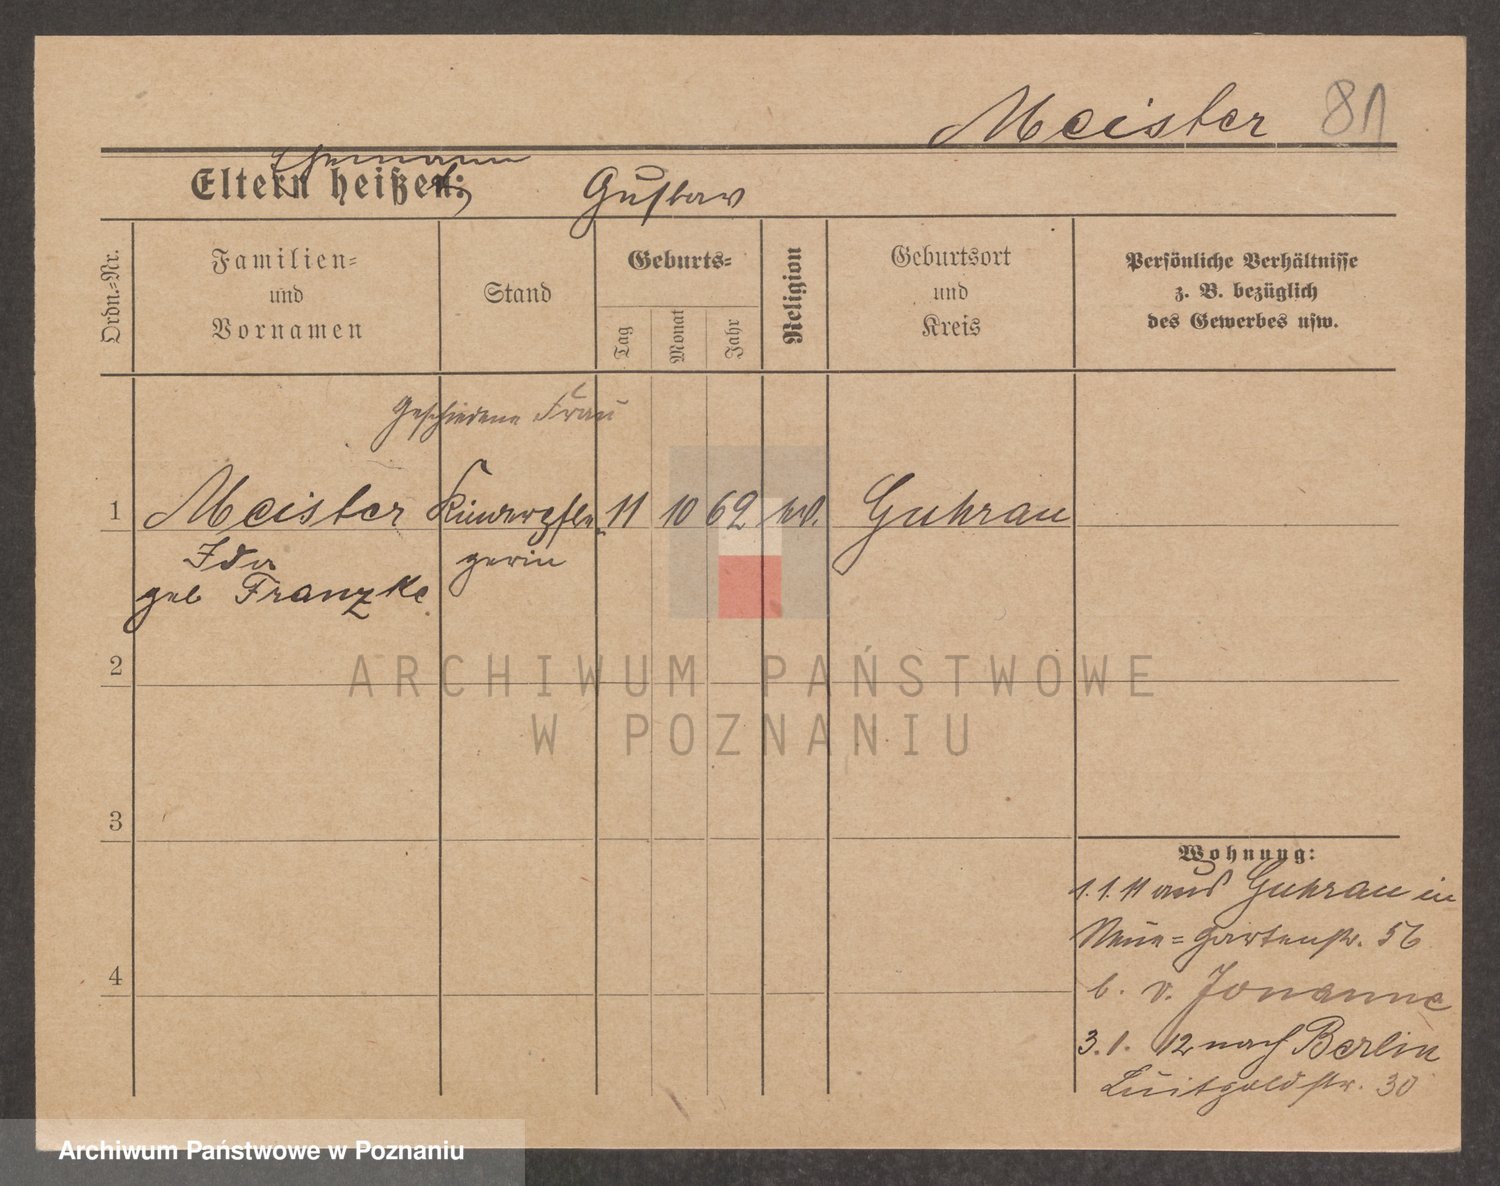 Meister 81
Ehemann
Eltern heißen: Gustav
Ordn.-Nr.
Familien-
und
Vornamen
Stand
Geburts-
Tag
Monat
Jahr
Religion
Geburtsort
und
Kreis
Persönliche Verhältnisse
z. B. bezüglich
des Gewerbes usw.
Geschiedene Frau
1 Meister Kinderpfle 11 10 62 Guhrau
Ida gerin
geb Franzke
2
3
4
Wohnung:
1.1.11 aus Guhrau in
Neue=Gartenstr. 56
b. v. Jonanne
3.1.12 nach Berlin
Luitpoldstr. 30
ARCHIWUM PAŃSTWOWE
W POZNANIU
Archiwum Państwowe w Poznaniu